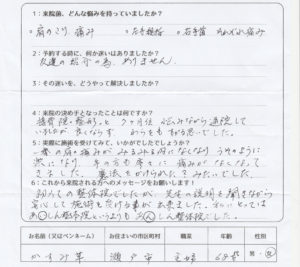 1：来院前、どんな悩みを持っていましたか？
・肩のこり、痛み ・右手 痛み
2：予約する時に、何か迷いはありましたか？
友達の紹介の為、ありません。
3：その迷いを、どうやって解決しましたか？
4：来院の決め手となったことは何ですか？
接骨院、整形と 悩みながら通院して
いましたが、良くならず
5：実際に施術を受けてみて、いかがでしたでしょうか？
一番の肩の痛みがみるみる内になくなり うそのように
楽になり、手の方も 痛みがなくなって
きました。 魔法をかけられた みたいでした。
6：これから来院される方へのメッセージをお願いします！
初めての整体院でしたが、先生の説明を聞きながら
安心して施術を受ける事が出来ました。私にとっては
整体院というよりも 整体院でした。
お名前（又はペンネーム） お住まいの市区町村 職業 年齢 性別
かすみ草 瀬戸市 主婦 6 歳 男・女